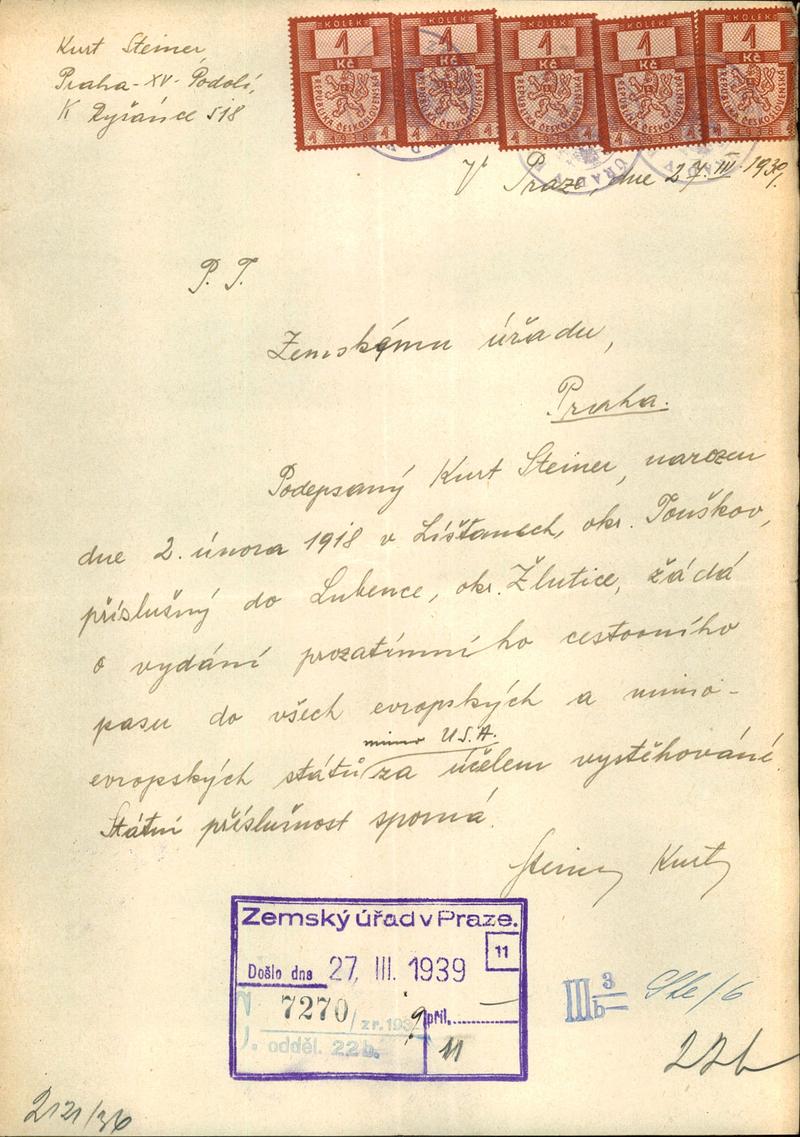 KOLEK KOLEK KOLEK KOLEK KOLEK
1 1 1 1 1
Kč Kč Kč Kč Kč
REPUBLIKA ČESKOSLOVENSKÁ REPUBLIKA ČESKOSLOVENSKÁ REPUBLIKA ČESKOSLOVENSKÁ REPUBLIKA ČESKOSLOVENSKÁ REPUBLIKA ČESKOSLOVENSKÁ
Kurt Steiner,
Praha-XV-Podolí,
K 518
V Praze, dne 27. III. 1939.
P. T.
Zemskému úřadu,
Praha.
Podepsaný Kurt Steiner, narozen
dne 2. února 1918 v Líšťanech, okr. Touškov,
příslušný do Lubence, okr. Žlutice, žádá
o vydání prozatímního cestovního
pasu do všech evropských a mimo-
mimo U.S.A.
evropských států za účelem vystěhování.
Státní příslušnost sporná.
Steiner Kurt
Zemský úřad v Praze.
11
Došlo dne 27. III. 1939
7270 / z r. 193 9 příl.
odděl. 22b. 11
III 3
b
22b
2121/36